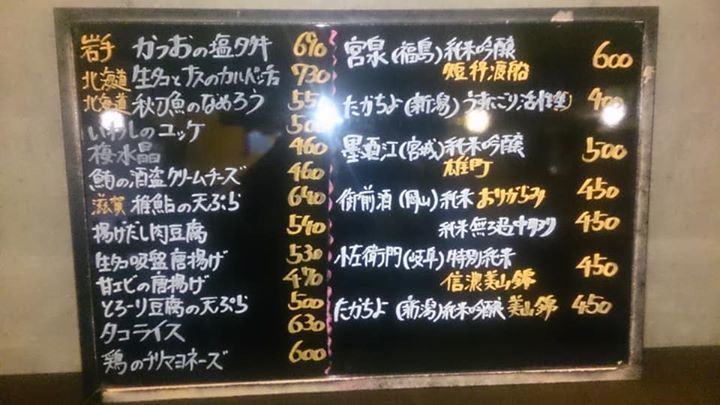 岩手 かつおの塩タタキ 690
北海道 生タコとナスのカルパッチョ 730
北海道 秋刀魚のなめろう 550
いわしのユッケ 500
梅水晶 460
鮪の酒盗クリームチーズ 460
滋賀 稚鮎の天ぷら 640
揚げだし肉豆腐 540
生タコ吸盤唐揚げ 530
甘エビの唐揚げ 470
とろーり豆腐の天ぷら 500
タコライス 630
鶏のチリマヨネーズ 600
宮泉(福島)純米吟醸 600
短稈渡船
たかちよ(新潟)うすにごり活性生 400
墨廼江(宮城)純米吟醸 500
雄町
御前酒(岡山)純米 おりがらみ 450
純米無ろ過 450
小左衛門(岐阜)特別純米 450
信濃美山錦
たかちよ(新潟)純米吟醸 美山錦 450